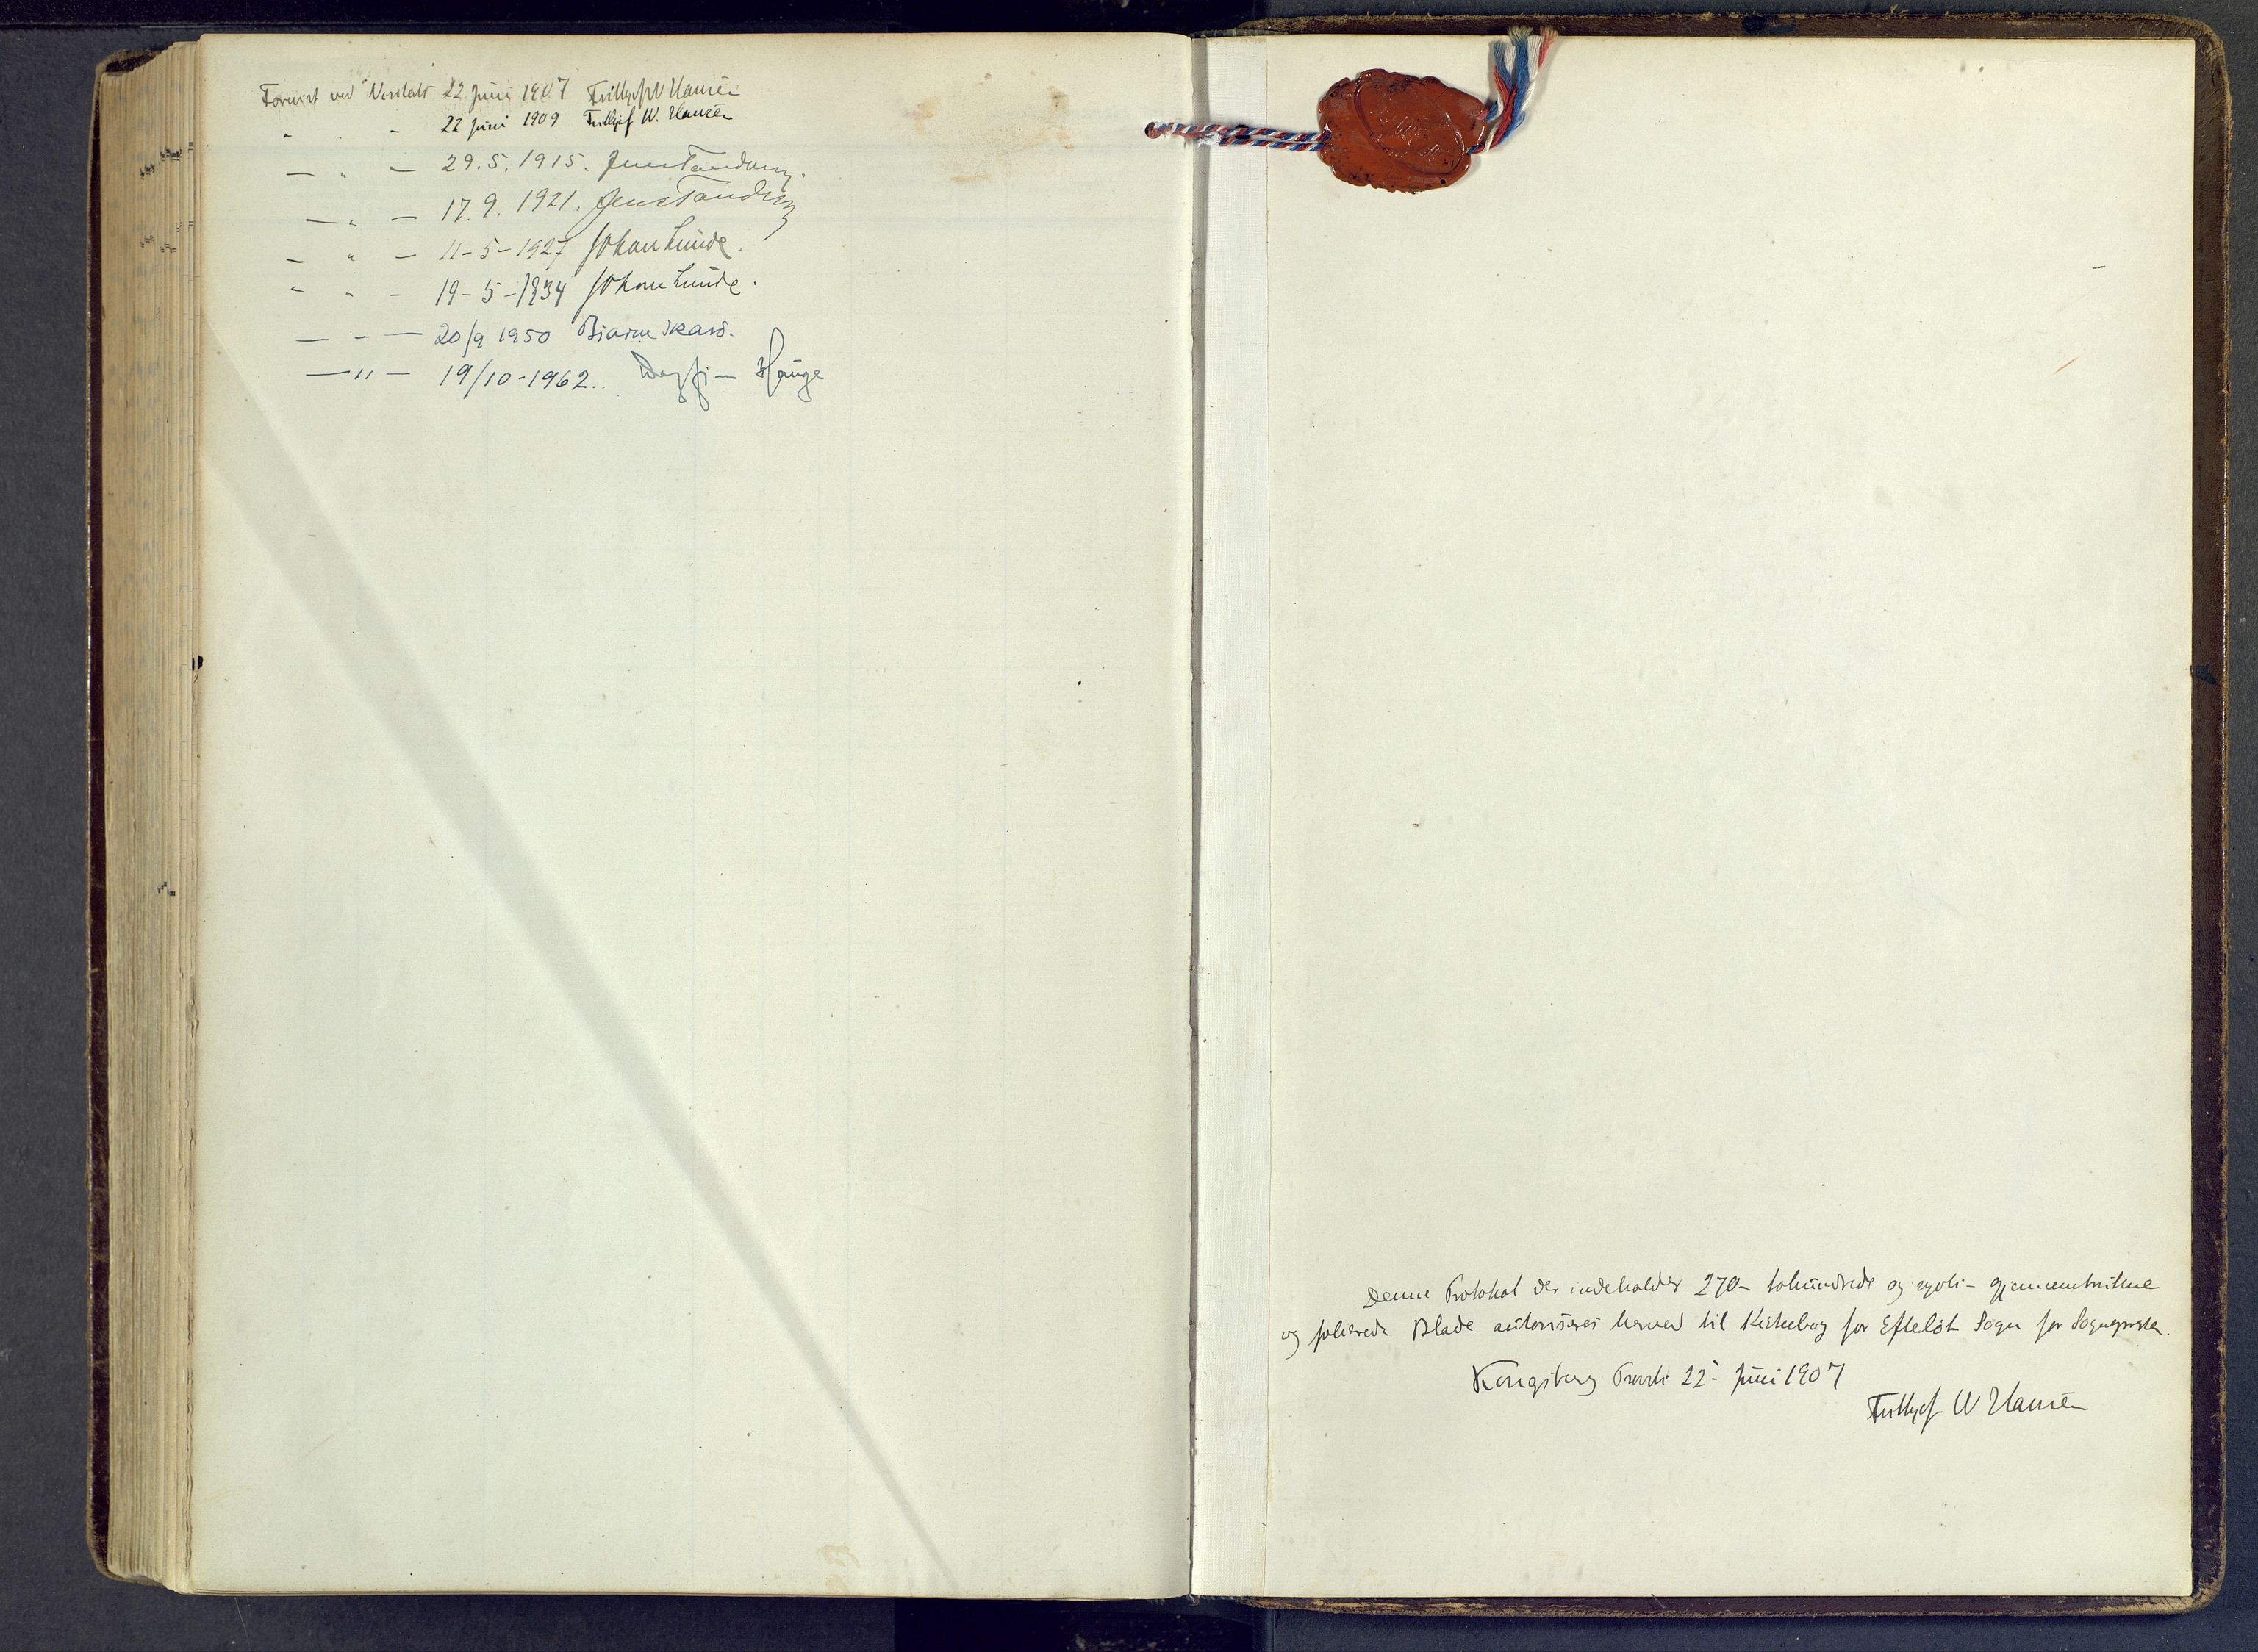 Forevist ved Visitats 22 Juni 1907 Fritthjof W Hansen
" " - 22 Juni 1909 Fritthjof W. Hansen
- " - 29.5.1915. Jens Tandberg.
- " - 17.9.1921. Jens Tandberg
- " - 11-5-1927 Johan Lunde.
" " - 19-5-1934 Johan Lunde.
- " - 20/9 1950 Bjarne Skard.
- " - 19/10-1962. Dagfin Hauge
Denne Protokol der indeholder 270 - tohundrede og sytti - gjennemtrukne
og folierede Blade autoriseres herved til Kirkebog for Efteløt Sogn for Sognepresten.
Kongsberg Provsti 22 Juni 1907
Fritthjof W Hansen